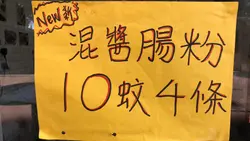 New 新
混醬腸粉
10蚊4條